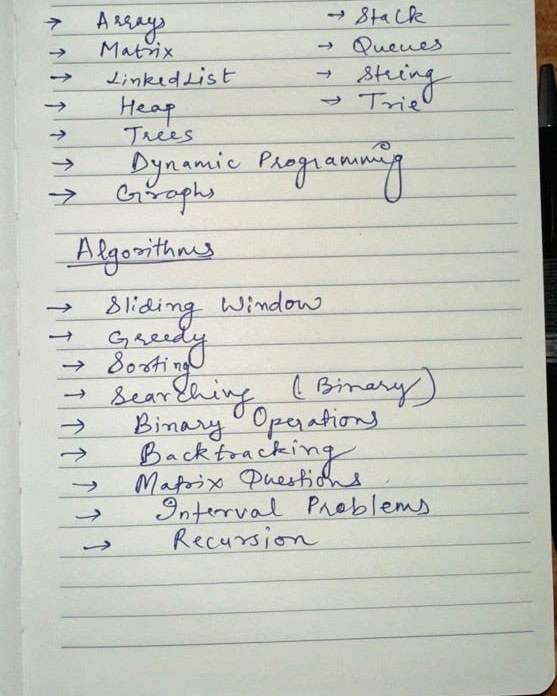 → Arrays → Stack
→ Matrix → Queues
→ LinkedList → String
→ Heap → Trie
→ Trees
→ Dynamic Programming
→ Graphs
Algorithms
→ Sliding Window
→ Greedy
→ Sorting
→ Searching (Binary)
→ Binary Operations
→ Backtracking
→ Matrix Questions
→ Interval Problems
→ Recursion